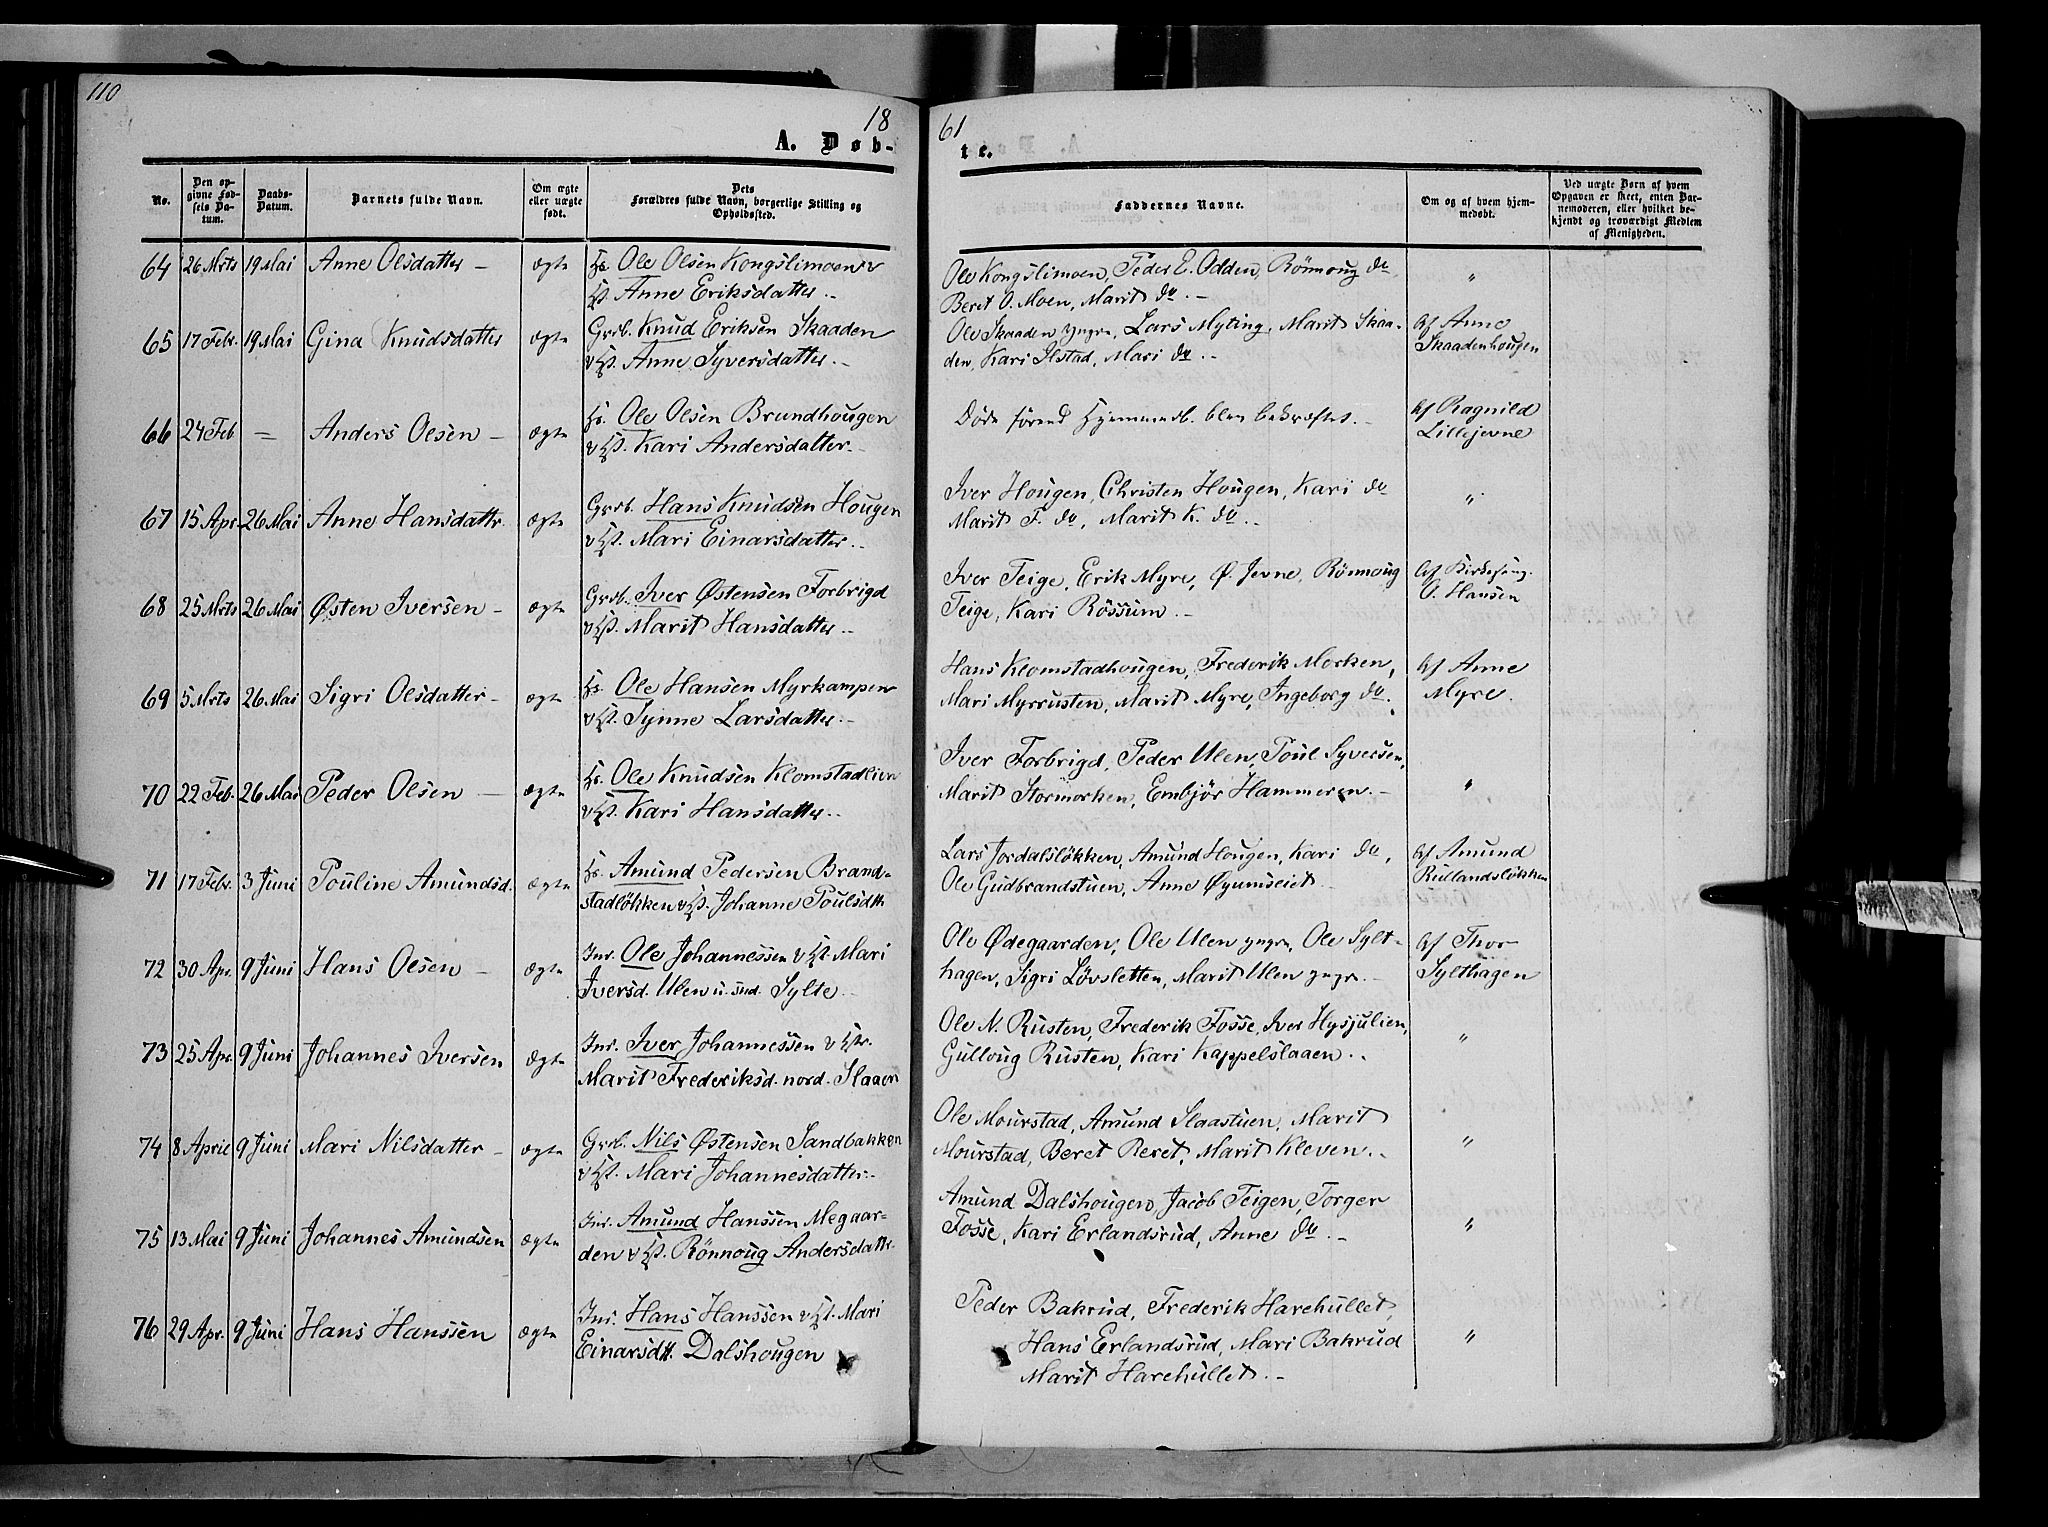 110
18 61
A. Døb- te.
No.
Den opgivne Fødsels Datum.
Daabs-Datum.
Barnets fulde Navn.
Om ægte eller uægte født.
Dets Forældres fulde Navn, borgerlige Stilling og Opholdssted.
Faddernes Navne.
Om og af hvem hjemmedøbt.
Ved uægte Børn af hvem Opgaven er skeet, enten Barnemoderen, eller hvilket bekjendt og troværdigt Medlem af Menigheden.
64 26 Mrts 19 Mai Anne Olsdatter – ægte Hs. Ole Olsen Kongslimoen v
Hst. Anne Eriksdatter.-
Ole Kongslimoen, Peder E. Odden, Rönnoug do
Beret O. Moen, Marit do.- "
65 17 Febr. 19 Mai Gina Knudsdatter ægte Grb. Knud Eriksen Skaaden
v Hst. Anne Syversdatter.-
Ole Skaaden yngre, Lars Myting, Marit Skaa-
den, Kari Ilstad, Mari do.-
Af Anne
Skaadenhougen
66 24 Feb = Anders Olsen – ægte Hs. Ole Olsen Brundhougen
v Hst. Kari Andersdatter.-
Døde førend Hjemmedb. blev bekræftet.-
Af Ragnild
Lillejevne
67 15 Apr. 26 Mai Anne Hansdattr. ægte Grb. Hans Knudsen Hougen
v Hst. Mari Einarsdatter.-
Iver Hougen, Christen Hougen, Kari do
Marit F. do, Marit K. do.- "
68 25 Mrts 26 Mai Østen Iversen – ægte Grb. Iver Østensen Forbrigd
v Hst. Marit Hansdatter.-
Iver Teige, Erik Myre, Ø. Jevne, Rönnoug
Teige, Kari Rössum.-
Af Kirkesang.
O. Hansen
69 5 Mrts 26 Mai Sigri Olsdatter – ægte Hs. Ole Hansen Myrkampen
v Hst. Synne Larsdatter.-
Hans Klomstadhougen, Frederik Morken,
Mari Myrrusten, Marit Myre, Ingeborg do.
Af Anne
Myre.
70 22 Feb. 26 Mai Peder Olsen – ægte Hs. Ole Knudsen Klomstadlien
v Hst. Kari Hansdatter.-
Iver Forbrigd, Peder Ulen, Poul Syversen,
Marit Stormorken, Embjör Hammeren.- "
71 17 Febr. 3 Juni Pouline Amundsd. ægte Hs. Amund Pedersen Brand-
stadløkken v Hst. Johanne Poulsdtt
Lars Jordalsløkken, Amund Hougen, Kari do,
Ole Gudbrandstuen, Anne Øyumseiet
Af Amund
Rullandsløkken
72 30 Apr. 9 Juni Hans Olsen – ægte Inr. Ole Johannessen v Hst. Mari
Iversd. Ulen u. Sylte.-
Ole Ødegaarden, Ole Ulen yngre, Ole Sylt-
hagen, Sigri Lövsletten, Marit Ulen yngre.-
Af Thor
Sylthagen
73 25 Apr. 9 Juni Johannes Iversen ægte Inr. Iver Johannessen v Hstr.
Marit Frederiksd. nord. Slaaen
Ole N. Rusten, Frederik Fosse, Iver Hysjulien,
Gulloug Rusten, Kari Kappelslaaen.. "
74 8 April 9 Juni Mari Nilsdatter – ægte Grb. Nils Østensen Sandbakken
v Hst. Mari Johannesdatter.-
Ole Mourstad, Amund Slaastuen, Marit
Mourstad, Beret Reret, Marit Kleven.. "
75 13 Mai 9 Juni Johannes Amundsen ægte Inr. Amund Hanssen Megaar-
den v Hst. Rönnoug Andersdattr.
Amund Dalshougen, Jacob Teigen, Torger
Fosse, Kari Erlandsrud, Anne do.- "
76 29 Apr. 9 Juni Hans Hanssen ægte Inr. Hans Hanssen v Hst. Mari
Einarsdtt. Dalshougen
Peder Bakrud, Frederik Harehullet,
Hans Erlandsrud, Mari Bakrud
Marit Harehullet.- "